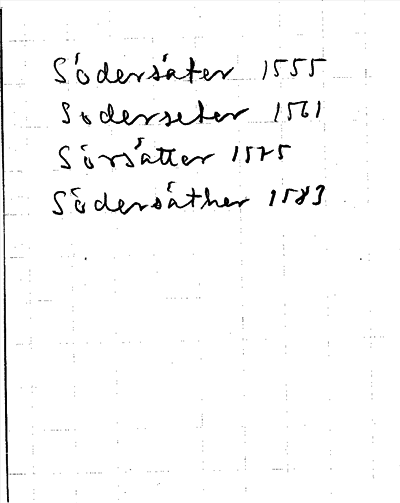 Södersäter 1555
Soderseter 1561
Sörsätter 1575
Södersäther 1583